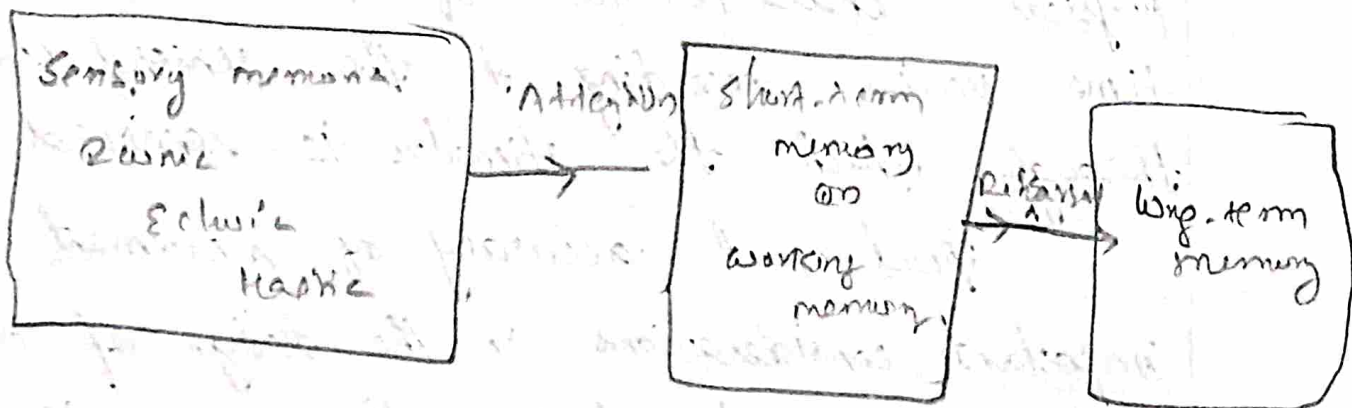 Sensory memory.
Iconic
Echoic
Haptic
Attention
Short-term
memory
or
working
memory.
Rehearsal
long-term
memory